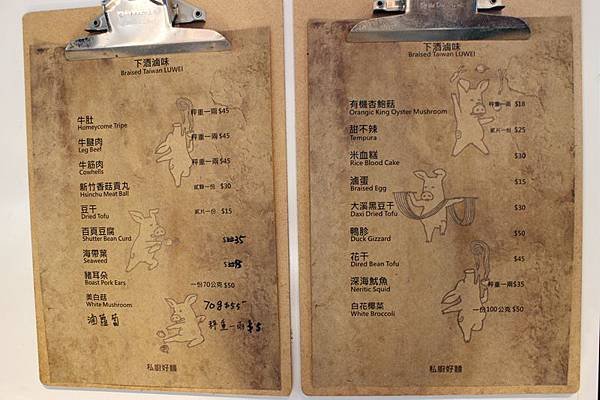 下酒滷味
Braised Taiwan LUWEI
牛肚 秤重一兩 $45
Homeycome Tripe
牛腱肉 秤重一兩 $45
Leg Beef
牛筋肉 秤重一兩 $45
Cowhells
新竹香菇貢丸 貳顆一份 $30
Hsinchu Meat Ball
豆干 貳片一份 $15
Dried Tofu
百頁豆腐 $35
Shutter Bean Curd
海帶菜
Seaweed
豬耳朵 一份70公克 $50
Boast Pork Ears
美白菇 70g $55
White Mushroom
滷蘿蔔 秤重一兩 $5
私廚好麵
下酒滷味
Braised Taiwan LUWEI
有機杏鮑菇 秤重一兩 $18
Orangic King Oyster Mushroom
甜不辣 貳片一份 $25
Tempura
米血糕 $30
Rice Blood Cake
滷蛋 $15
Braised Egg
大溪黑豆干 $30
Daxi Dried Tofu
鴨胗 $50
Duck Gizzard
花干 $45
Dired Bean Tofu
深海魷魚 秤重一兩 $35
Neritic Squid
白花椰菜 一份100公克 $50
White Broccoli
私廚好麵